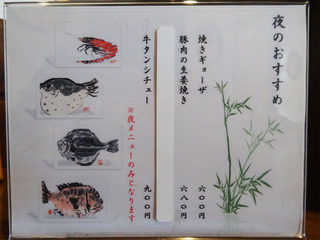 夜のおすすめ
焼きギョーザ 六〇〇円
豚肉の生姜焼き 六八〇円
牛タンシチュー 九〇〇円
※夜メニューのみとなります